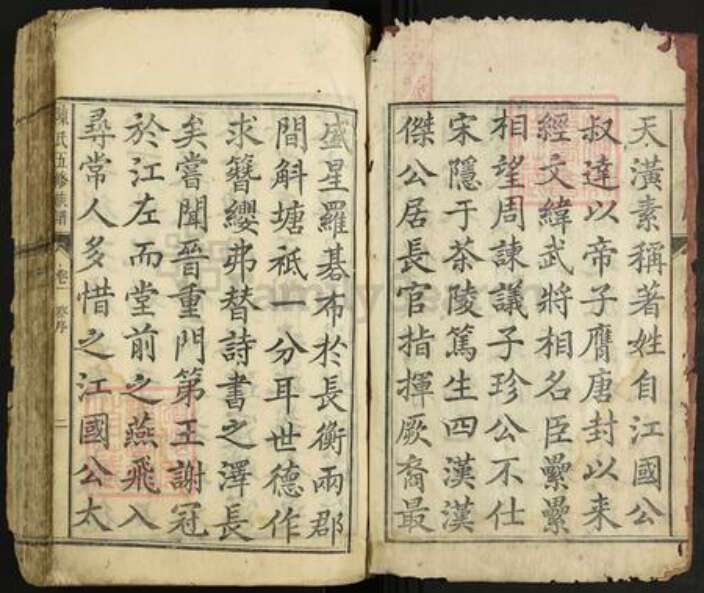 天潢素稱著姓自江國公
叔達以帝子膺唐封以来
經文緯武將相名臣纍纍
相望周諫議子珍公不仕
宋隱于茶陵篤生四漢漢
傑公居長官指揮厥裔最
盛星羅碁布於長衡兩郡
間斛塘祇一分耳世德作
求簪纓弗替詩書之澤長
矣嘗聞晉重門第王謝冠
於江左而堂前之燕飛入
尋常人多惜之江國公太
陳氏五修族譜
卷一
二